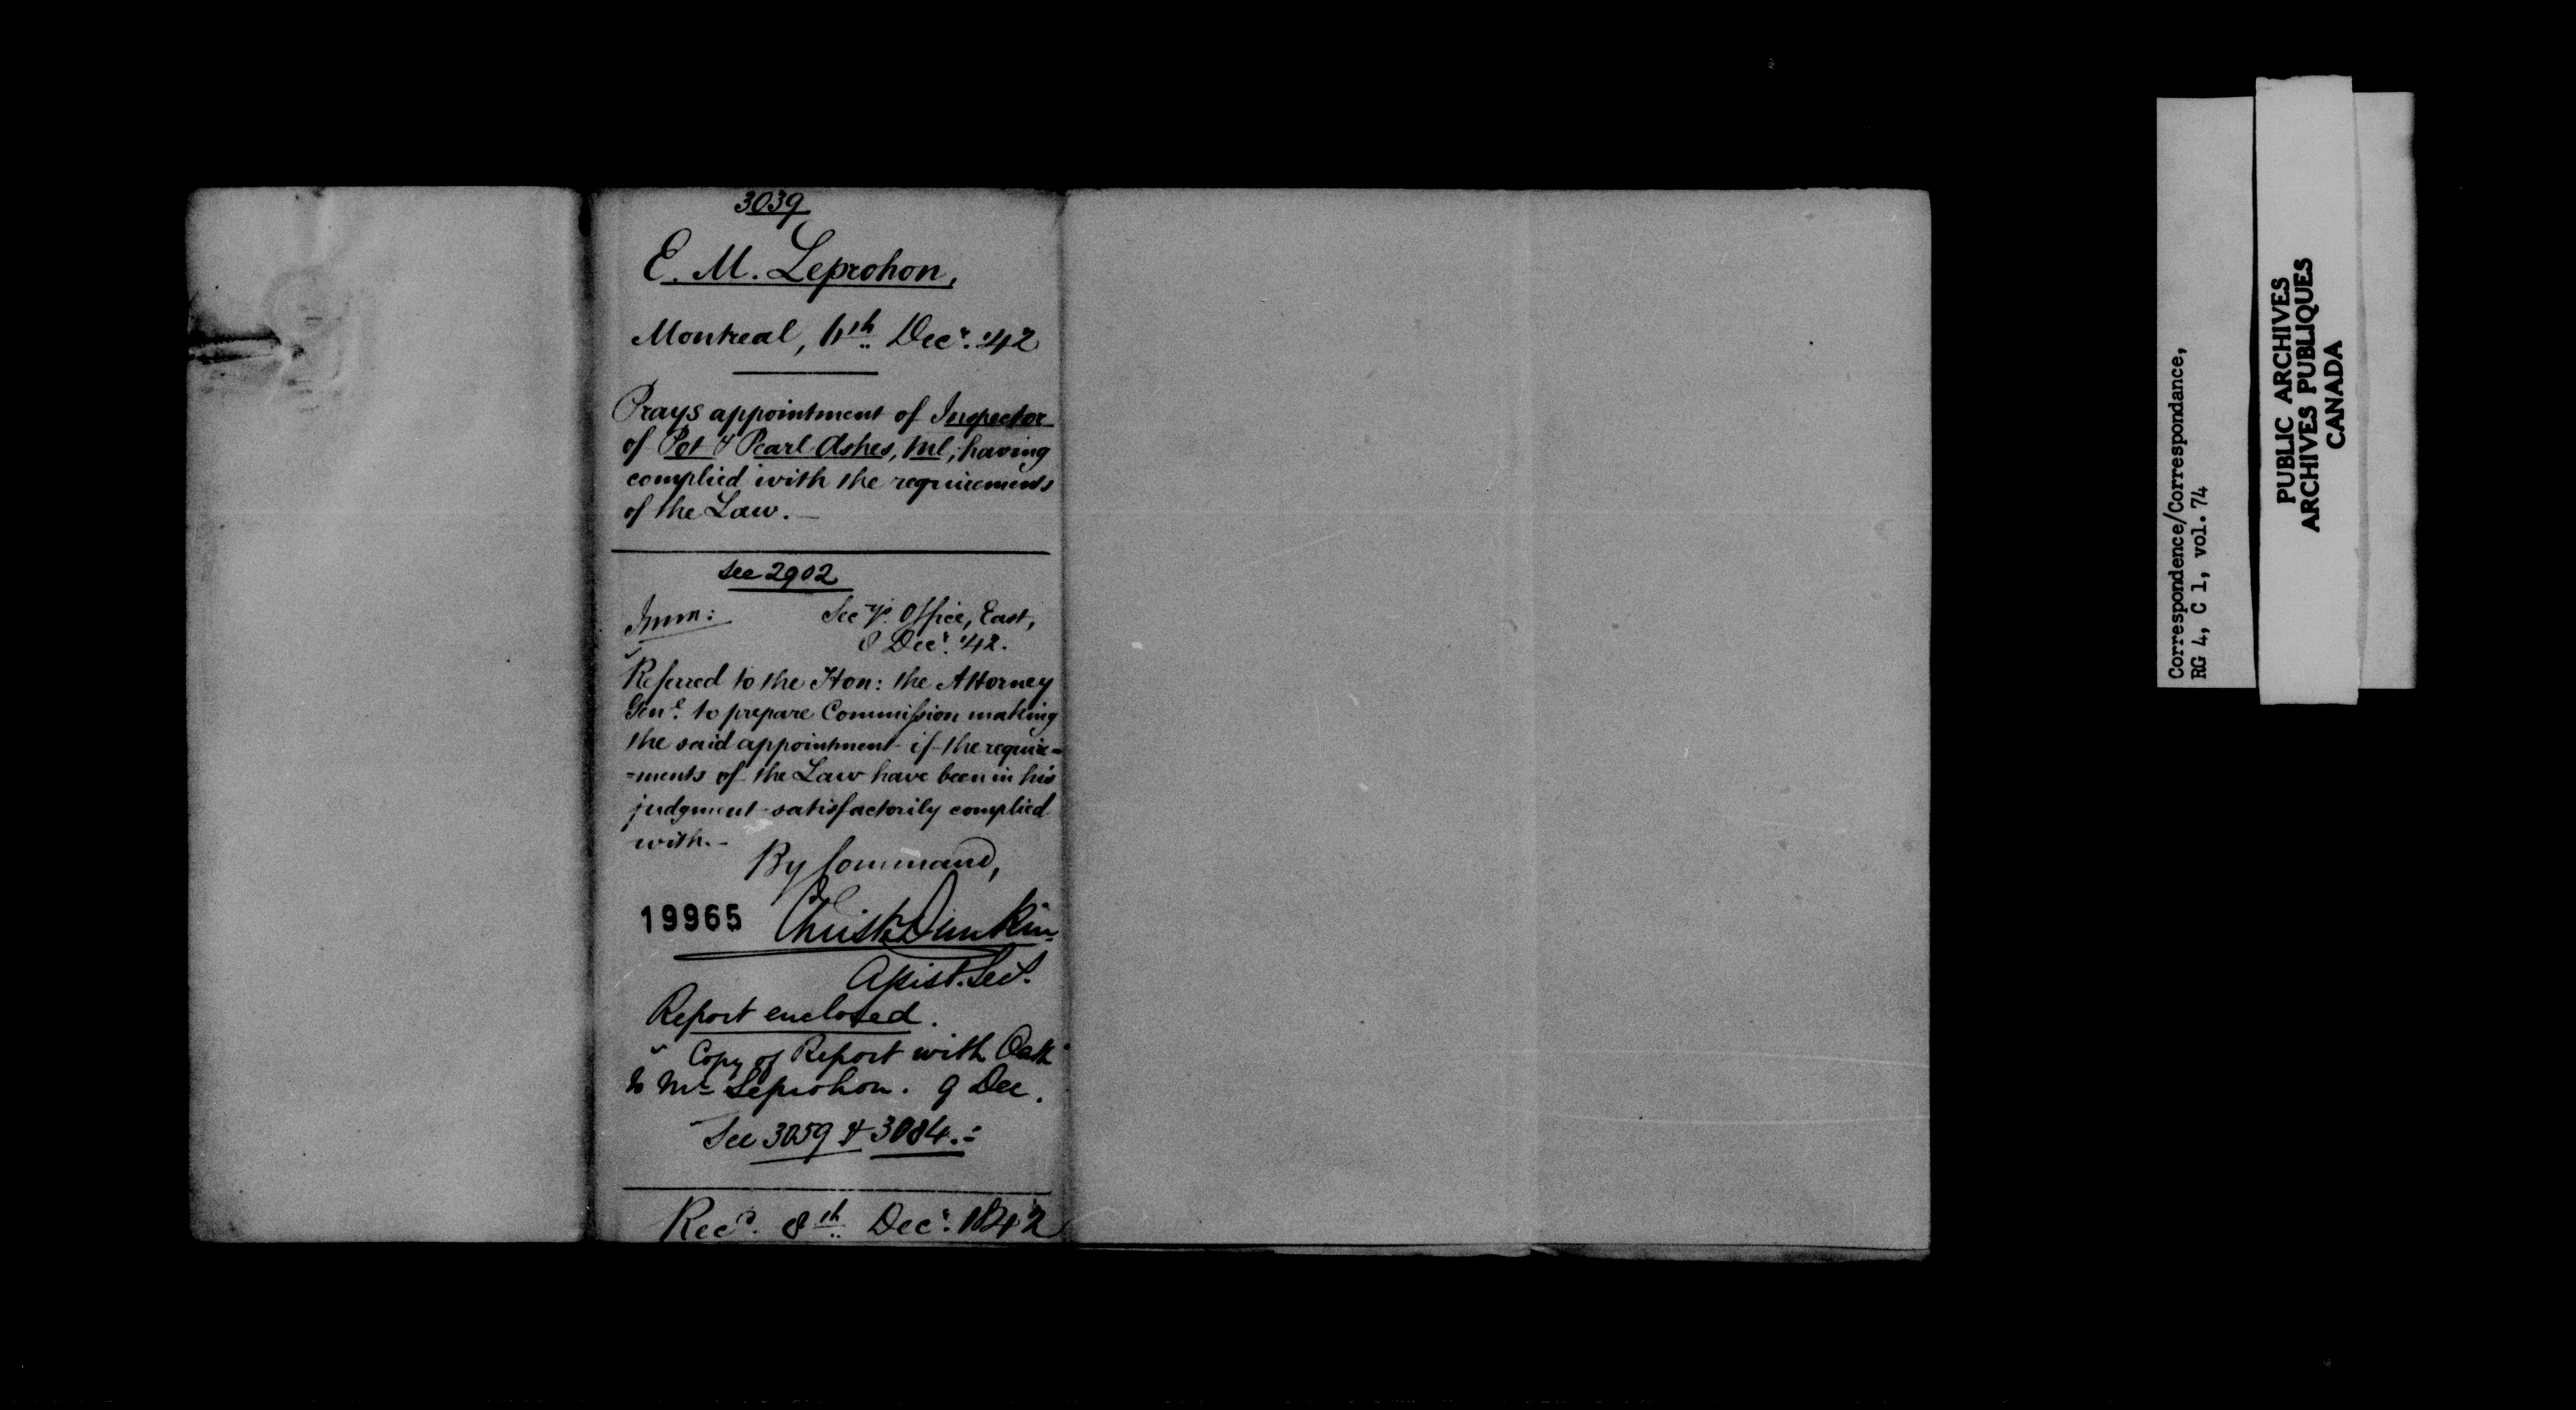 3039
E. M. Leprohon,
Montreal, 6th Decr. '42
Prays appointment of Inspector
of Pot & Pearl Ashes, Ml, having
complied with the requirements
of the Law.—
See 2902
Imm:
Secy's. Office, East,
8 Decr. '42.
Referred to the Hon: the Attorney
Genl. to prepare Commission making
the said appointment if the require=
=ments of the Law have been in his
judgment satisfactorily complied
with.—
By Command,
19965
Christr. Dunkin
Assist. Secy.
Report enclosed.
Copy of Report with Oath
to Mr Leprohon. 9 Dec.
See 3059 & 3084.=
Recd. 8th Decr. 1842
Correspondence/Correspondance,
RG 4, C 1, vol. 74
PUBLIC ARCHIVES
ARCHIVES PUBLIQUES
CANADA